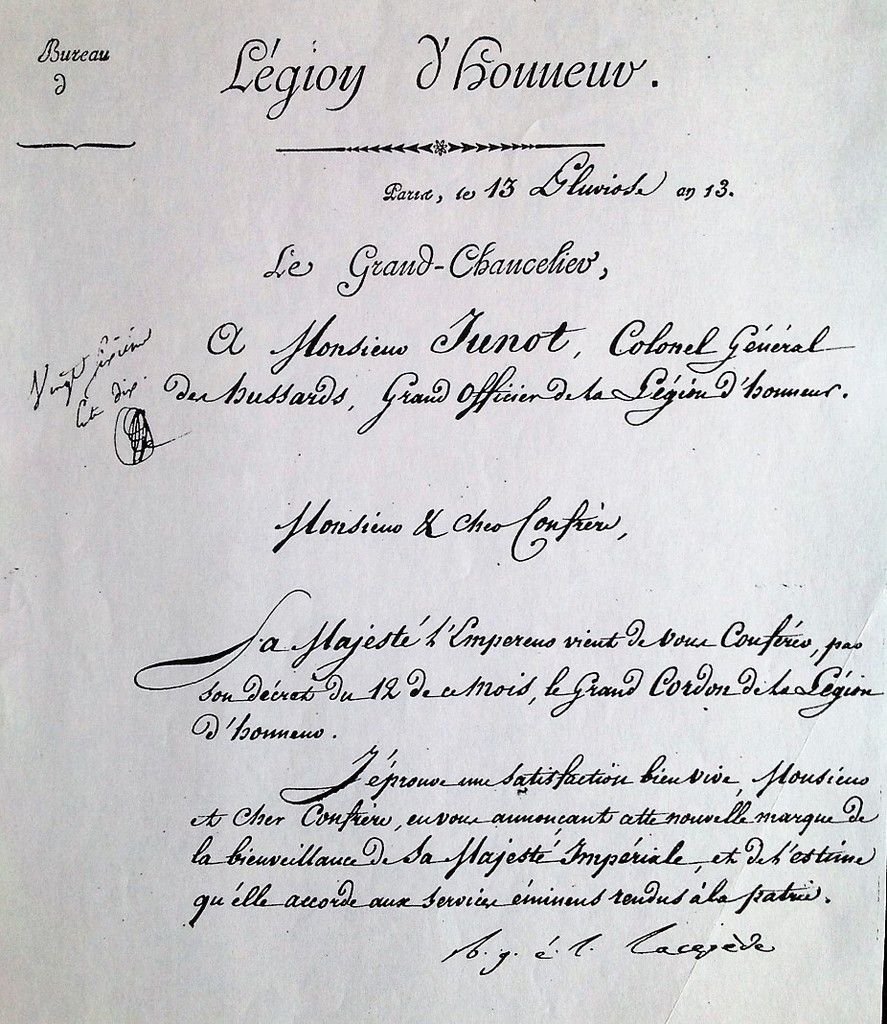 Bureau
d
Légion d'honneur.
Paris, le 13 Pluviose an 13.
Le Grand-Chancelier,
A Monsieur Junot, Colonel Général
des hussards, Grand Officier de la Légion d'honneur.
Vingt
dix
Monsieur & cher Confrère,
Sa Majesté l'Empereur vient de vous Conférer, par
son décret du 12 de ce mois, le Grand Cordon de la Légion
d'honneur.
J'éprouve une satisfaction bien vive, Monsieur
et cher Confrère, en vous annonçant cette nouvelle marque de
la bienveillance de Sa Majesté Impériale, et de l'estime
qu'elle accorde aux services éminens rendus à la patrie.
b. g. é. l. Lacepède